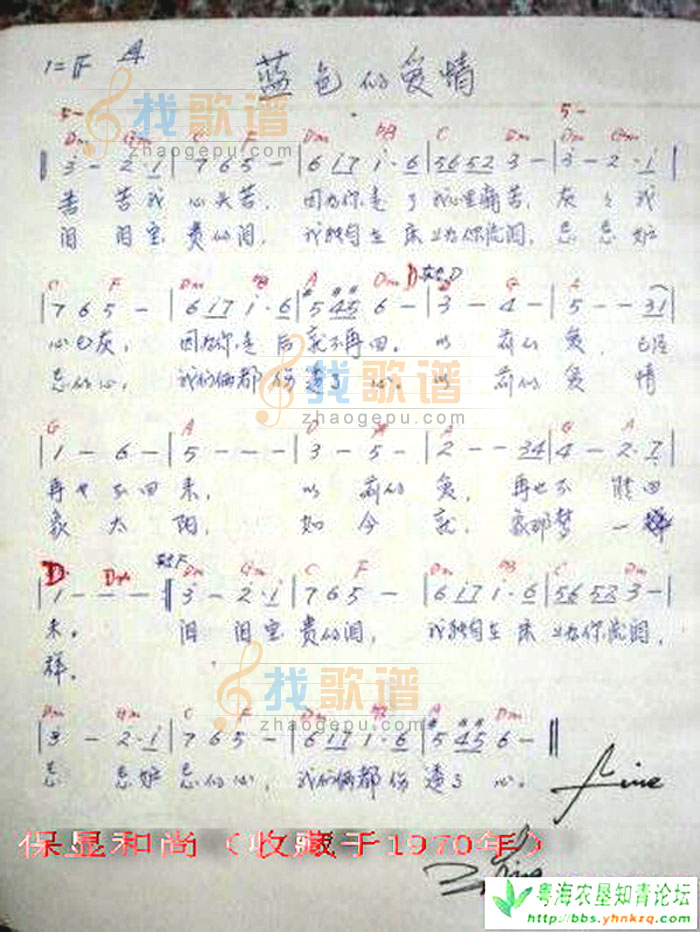 1=F 4/4 蓝色的爱情
Dm Gm C F Dm bB C Dm Dm Gm
3 - 2·1 | 7 6 5 - | 6 17 1·6 | 56 52 3 - | 3 - 2·1 |
苦 苦我 心头苦, 因为你走了 我心里痛苦, 灰 灰我
泪 泪宝 贵的泪, 我独自在 床上为你流泪, 忌 忌妒
C F Dm bB A Dm D G A
| 7 6 5 - | 6 17 1·6 | #5 #4#5 6 - | 3 - 4 - | 5 - - 31 |
心已灰, 因为你走后就不再回。 以 前的 爱, 已经
忌的心, 我们俩都伤透了 心。 以 前的 爱 情
G A D A G A
| 1 - 6 - | 5 - - - | 3 - 5 - | 2 - - 34 | 4 - 2·7 |
再也不回 来, 以 前的 爱, 再也不 能回
象 太 阳, 如 今 就, 象那梦 一
D Dm Dm Gm C F Dm bB C Dm
| 1 - - - ‖ 3 - 2·1 | 7 6 5 - | 6 17 1·6 | 56 52 3 - |
来。 泪 泪宝 贵的泪, 我独自在 床上为你流泪,
样。
Dm Gm C F Dm bB A Dm
| 3 - 2·1 | 7 6 5 - | 6 17 1·6 | #5 #4#5 6 - ‖
忌 忌妒 忌的心, 我们俩都伤 透了 心。
Fine
保显和尚（收藏于1970年）
找歌谱
zhaogepu.com
找歌谱
zhaogepu.com
找歌谱
zhaogepu.com
粤海农垦知青论坛
http://bbs.yhnkzq.com